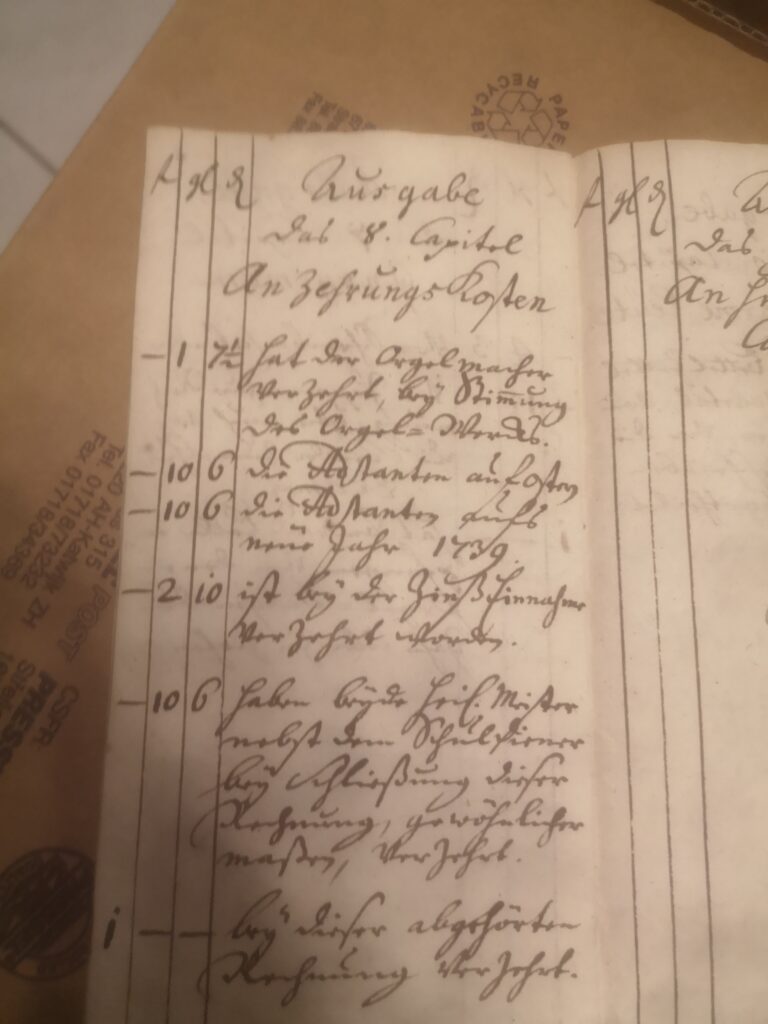 RECYCABLE PAPE
fl gl ₰ Ausgabe
das 8. Capitel
An Zehrungs Kosten
— 1 7½ hat der Orgelmacher
verzehrt, bey Stimmung
des Orgel=Wercks.
— 10 6 die Adstanten auf Osten
— 10 6 die Adstanten aufs
neue Jahr 1739.
— 2 10 ist bey der Zinß Einnahme
verzehrt worden.
— 10 6 haben beyde Heil. Meister
nebst dem Schuldiener
bey Schließung dieser
Rechnung, gewöhnlicher
maßen, verzehrt.
1 — — bey dieser abgehörten
Rechnung verzehrt.
fl gl ₰
das
An
315
AH-Katwijk ZH
Tel. 01718/73232
Fax 01718/34369
POST